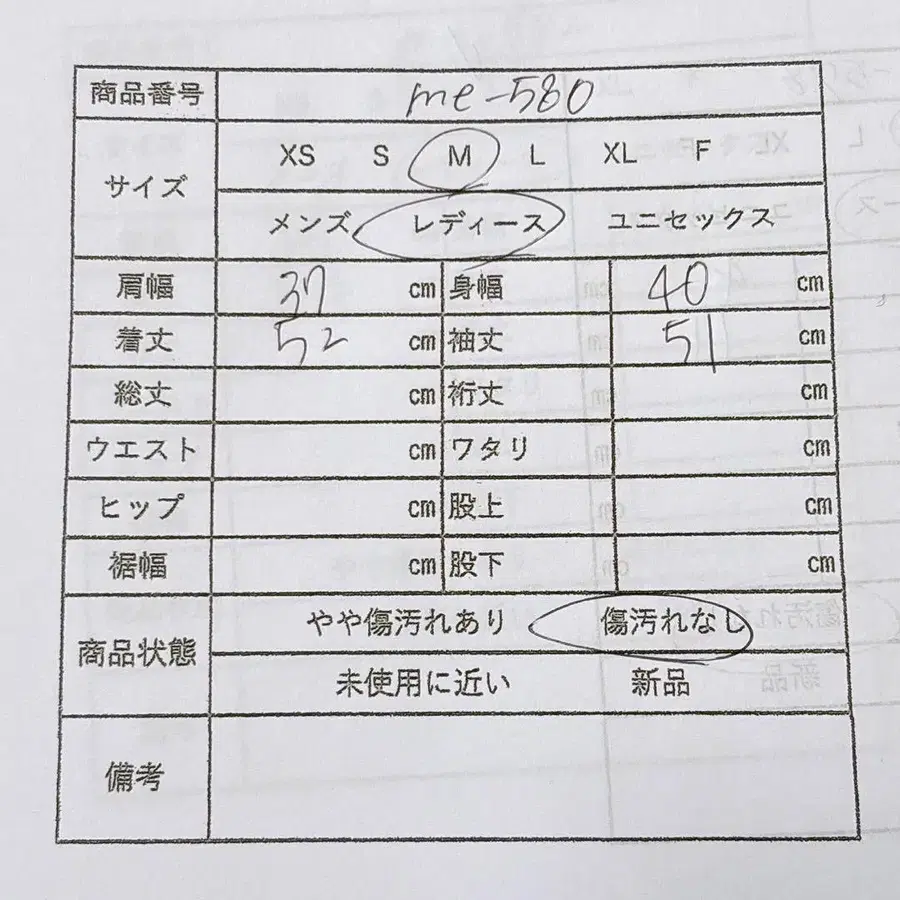 商品番号 me-580
サイズ
XS S M L XL F
メンズ レディース ユニセックス
肩幅 37 cm 身幅 40 cm
着丈 52 cm 袖丈 51 cm
総丈 cm 裄丈 cm
ウエスト cm ワタリ cm
ヒップ cm 股上 cm
裾幅 cm 股下 cm
商品状態
やや傷汚れあり 傷汚れなし
未使用に近い 新品
備考